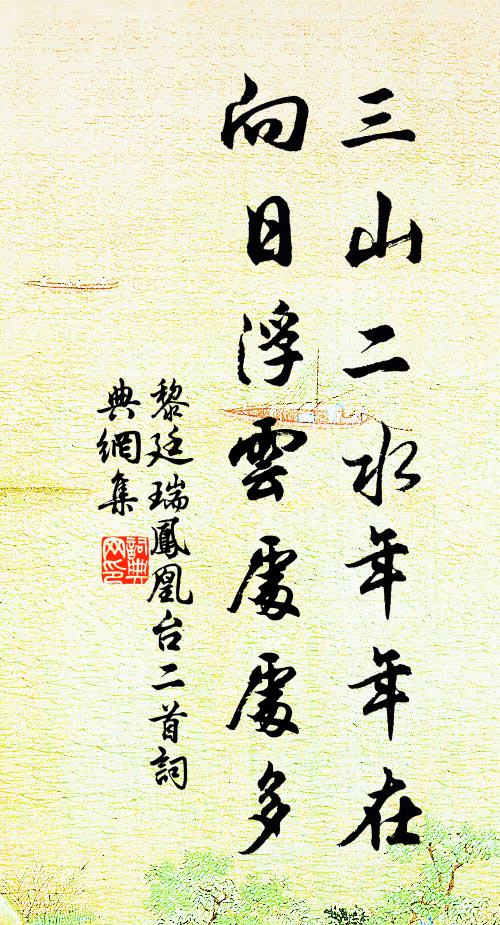 三山二水年年在
向日浮雲處處多
黎廷瑞鳳凰台二首詞
典網集
詞典
网印